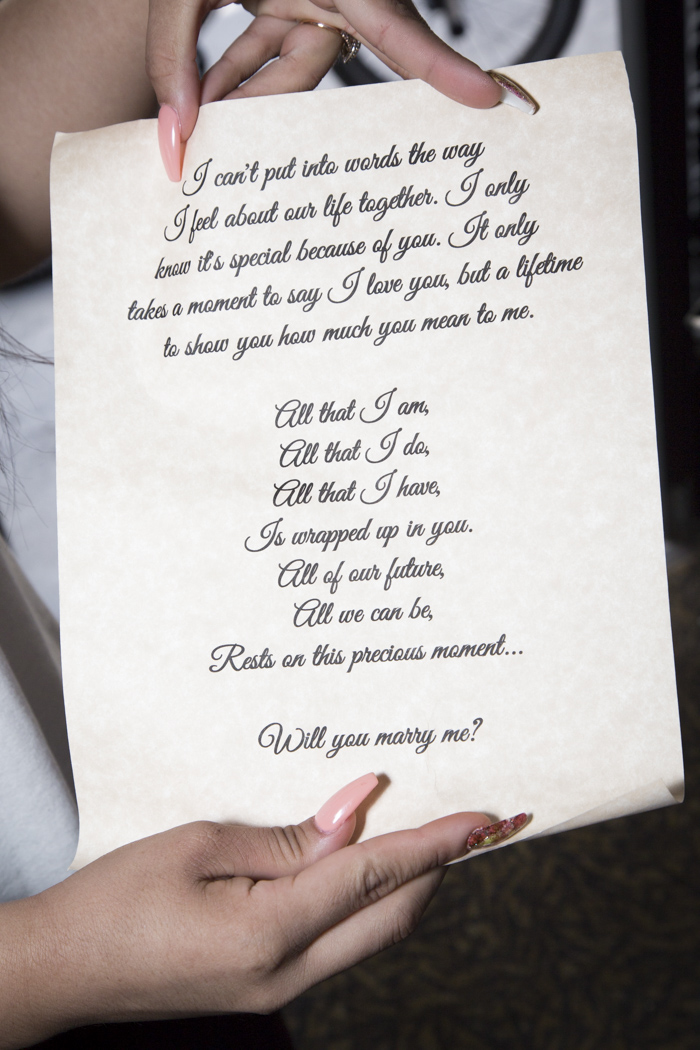 I can't put into words the way
I feel about our life together. I only
know it's special because of you. It only
takes a moment to say I love you, but a lifetime
to show you how much you mean to me.
All that I am,
All that I do,
All that I have,
Is wrapped up in you.
All of our future,
All we can be,
Rests on this precious moment...
Will you marry me?